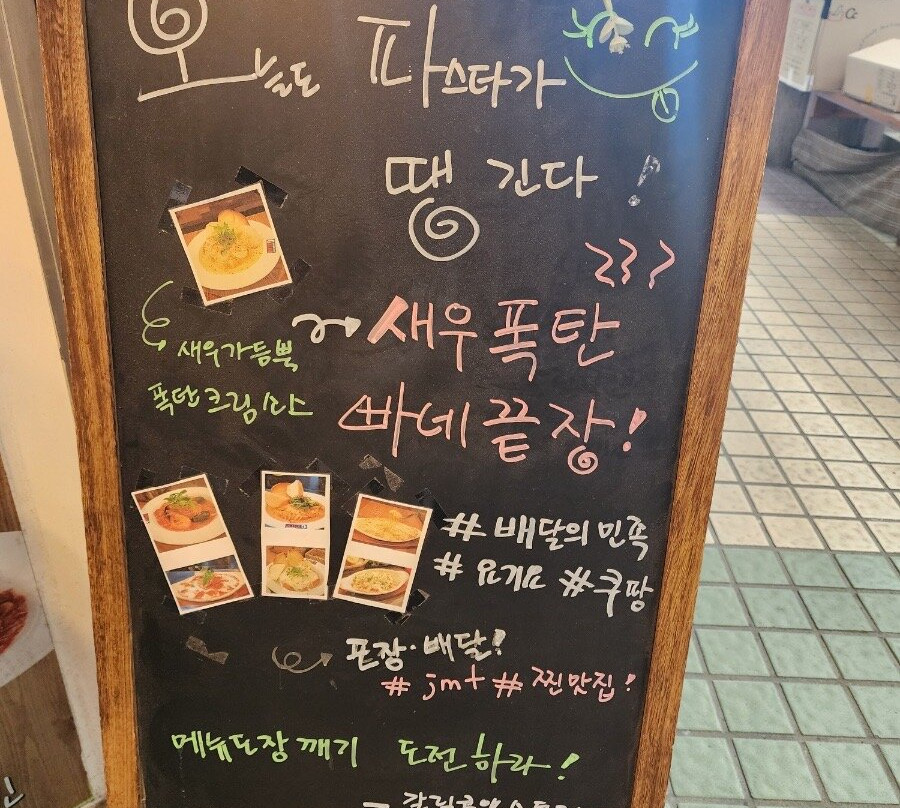 오늘도 파스타가
땡긴다!
새우폭탄
새우가듬뿍
폭탄크림
빠네끝장!
# 배달의민족
# 요기요 # 쿠팡
포장·배달!
# jmt # 찐맛집!
메뉴도장깨기 도전하라!